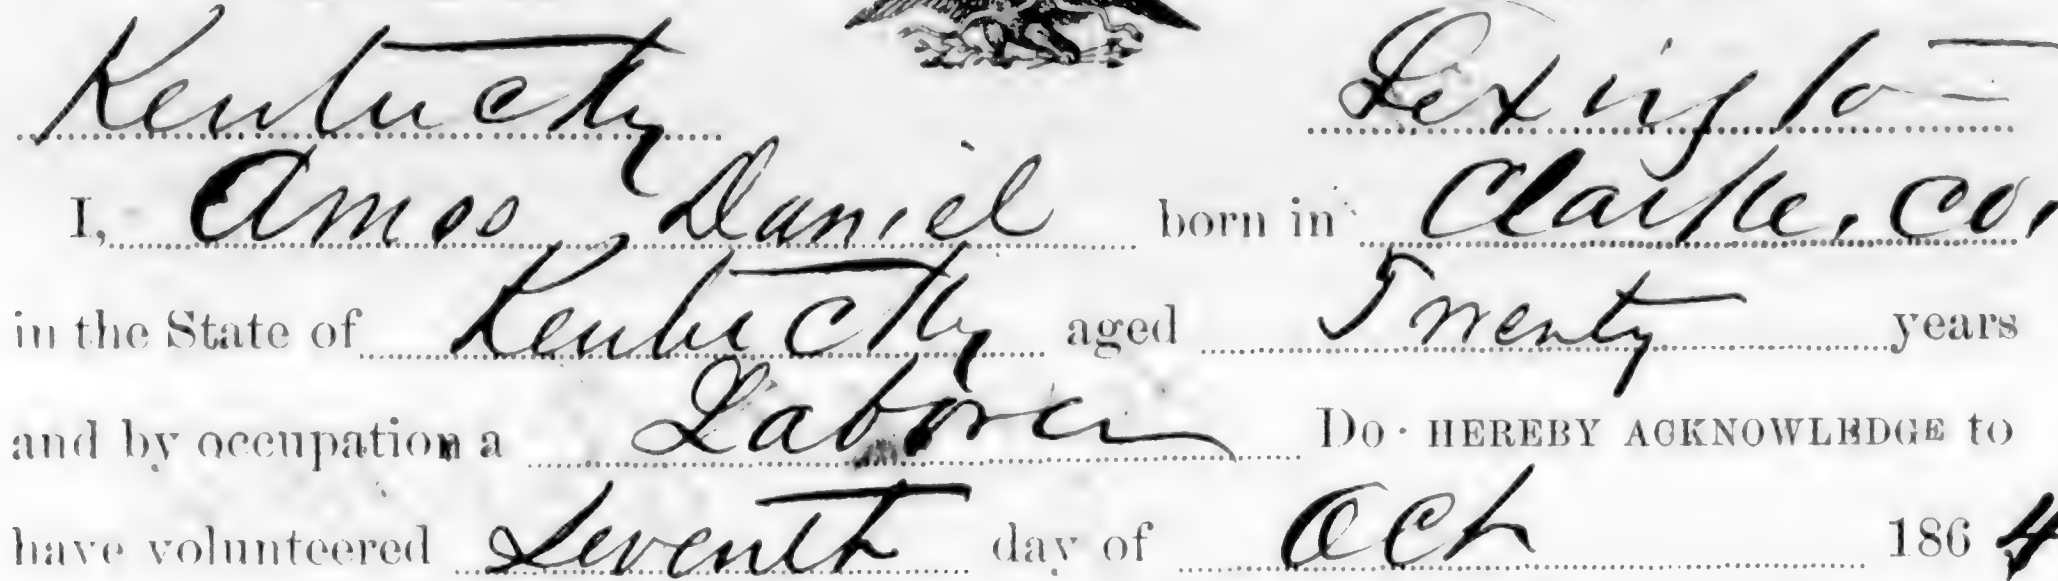 Kentucky Lexington
I, Amos Daniel born in Clarke, Co,
in the State of Kentucky aged Twenty years
and by occupation a Laborer Do HEREBY ACKNOWLEDGE to
have volunteered Seventh day of Oct 1864